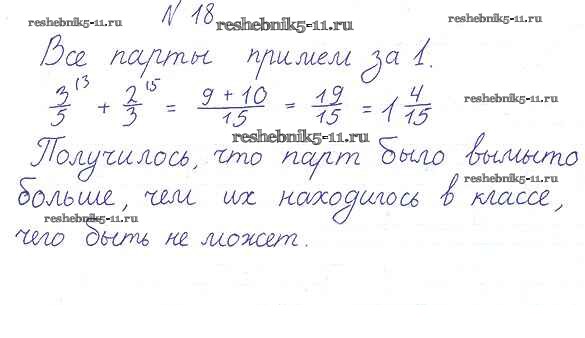 reshebnik5-11.ru № 18 reshebnik5-11.ru
reshebnik5-11.ru
Все парты примем за 1.
3/5 ⁽³ + 2/3 ⁽⁵ = 9+10/15 = 19/15 = 1 4/15
reshebnik5-11.ru
reshebnik5-11.ru
Получилось, что парт было вымыто
reshebnik5-11.ru
больше, чем их находилось в классе,
reshebnik5-11.ru
чего быть не может.
reshebnik5-11.ru